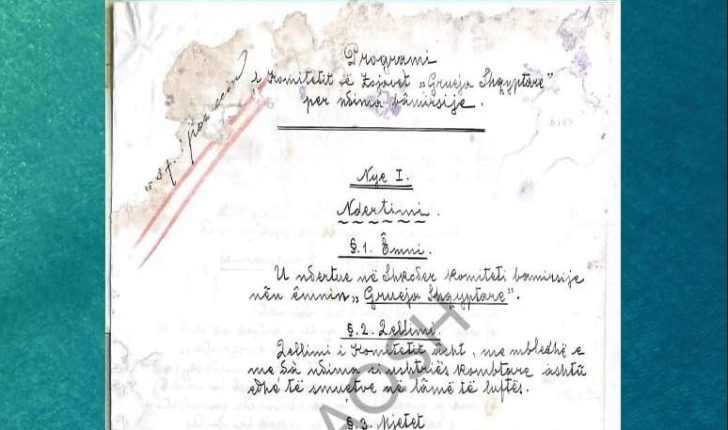 Programi
i Komitetit të Zojavet „Grueja Shqyptare"
per ndimë bâmirsije.
Nye I.
Ndertimi.
§.1. Êmni.
U ndertue në Shkoder komiteti bamirsije
nën êmnin „Grueja Shqyptare".
§.2. Qellimi.
Qellimi i Komitetit âsht, me mbledhë e
me dà ndima si ushtriës kombtare ashtû
edhé të smuetve në lâmë të luftës.
§.3. Mjetet
AQSH